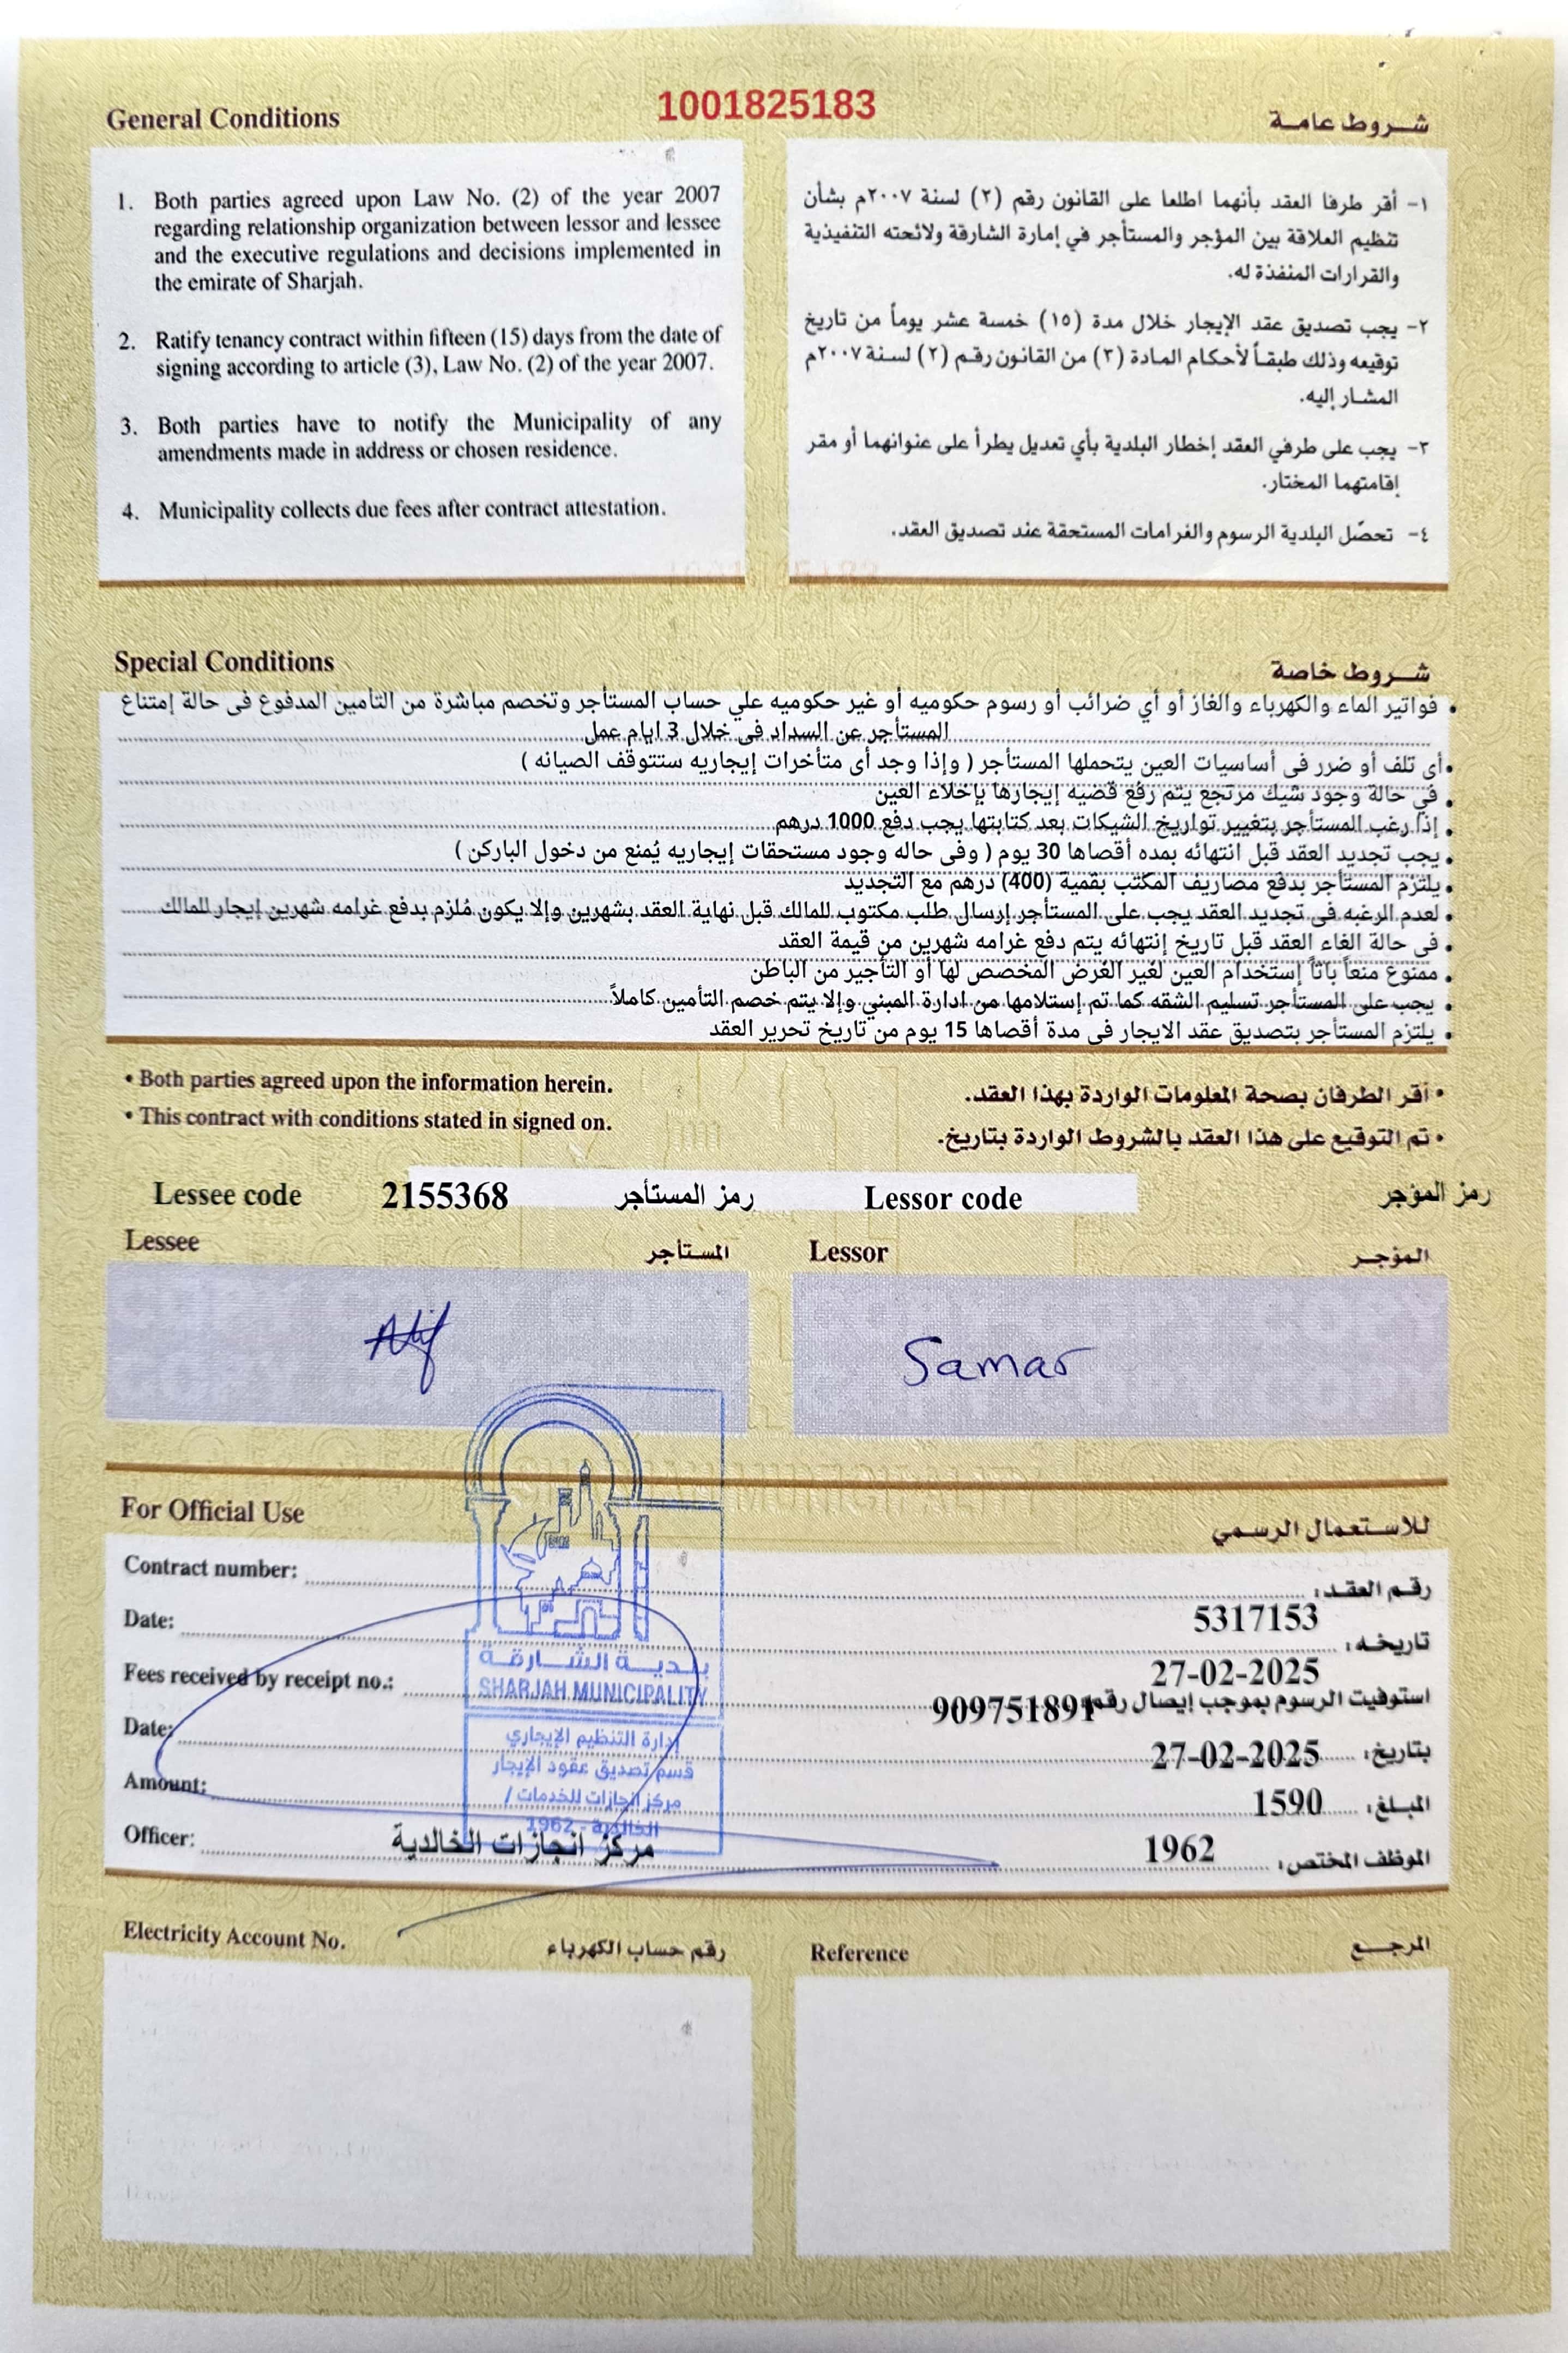 1001825183
General Conditions
شروط عامة
1. Both parties agreed upon Law No. (2) of the year 2007
regarding relationship organization between lessor and lessee
and the executive regulations and decisions implemented in
the emirate of Sharjah.
2. Ratify tenancy contract within fifteen (15) days from the date of
signing according to article (3), Law No. (2) of the year 2007.
3. Both parties have to notify the Municipality of any
amendments made in address or chosen residence.
4. Municipality collects due fees after contract attestation.
١- أقر طرفا العقد بأنهما اطلعا على القانون رقم (٢) لسنة ٢٠٠٧م بشأن
تنظيم العلاقة بين المؤجر والمستأجر في إمارة الشارقة ولائحته التنفيذية
والقرارات المنفذة له.
٢- يجب تصديق عقد الإيجار خلال مدة (١٥) خمسة عشر يوماً من تاريخ
توقيعه وذلك طبقاً لأحكام المادة (٣) من القانون رقم (٢) لسنة ٢٠٠٧م
المشار إليه.
٣- يجب على طرفي العقد إخطار البلدية بأي تعديل يطرأ على عنوانهما أو مقر
إقامتهما المختار.
٤- تحصّل البلدية الرسوم والغرامات المستحقة عند تصديق العقد.
Special Conditions
شروط خاصة
• فواتير الماء والكهرباء والغاز أو أي ضرائب أو رسوم حكوميه أو غير حكوميه علي حساب المستأجر وتخصم مباشرة من التأمين المدفوع فى حالة إمتناع
المستأجر عن السداد فى خلال 3 ايام عمل
• أى تلف أو ضرر فى أساسيات العين يتحملها المستأجر ( وإذا وجد أى متأخرات إيجاريه ستتوقف الصيانه )
• في حالة وجود شيك مرتجع يتم رفع قضيه إيجارها بإخلاء العين
• إذا رغب المستأجر بتغيير تواريخ الشيكات بعد كتابتها يجب دفع 1000 درهم
• يجب تجديد العقد قبل انتهائه بمده أقصاها 30 يوم ( وفى حاله وجود مستحقات إيجاريه يُمنع من دخول الباركن )
• يلتزم المستأجر بدفع مصاريف المكتب بقمية (400) درهم مع التجديد
• لعدم الرغبه فى تجديد العقد يجب على المستأجر إرسال طلب مكتوب للمالك قبل نهاية العقد بشهرين وإلا يكون مُلزم بدفع غرامه شهرين إيجار للمالك
• فى حالة الغاء العقد قبل تاريخ إنتهائه يتم دفع غرامه شهرين من قيمة العقد
• ممنوع منعاً باتاً إستخدام العين لغير الغرض المخصص لها أو التأجير من الباطن
• يجب على المستأجر تسليم الشقه كما تم إستلامها من ادارة المبني وإلا يتم خصم التأمين كاملاً
• يلتزم المستأجر بتصديق عقد الايجار فى مدة أقصاها 15 يوم من تاريخ تحرير العقد
• Both parties agreed upon the information herein.
• This contract with conditions stated in signed on.
• أقر الطرفان بصحة المعلومات الواردة بهذا العقد.
• تم التوقيع على هذا العقد بالشروط الواردة بتاريخ.
Lessee code 2155368 رمز المستأجر
Lessor code رمز المؤجر
Lessee المستأجر
Lessor المؤجر
Samar
For Official Use
للاستعمال الرسمي
Contract number: رقم العقد:
5317153
Date: تاريخه:
27-02-2025
Fees received by receipt no.: 909751891 استوفيت الرسوم بموجب إيصال رقم
Date: 27-02-2025 بتاريخ:
Amount: 1590 المبلغ:
Officer: مركز انجازات الخالدية 1962 الموظف المختص:
بلدية الشارقة
SHARJAH MUNICIPALITY
إدارة التنظيم الإيجاري
قسم تصديق عقود الإيجار
مركز انجازات للخدمات /
الخالدية - 1962
Electricity Account No. رقم حساب الكهرباء
Reference المرجع